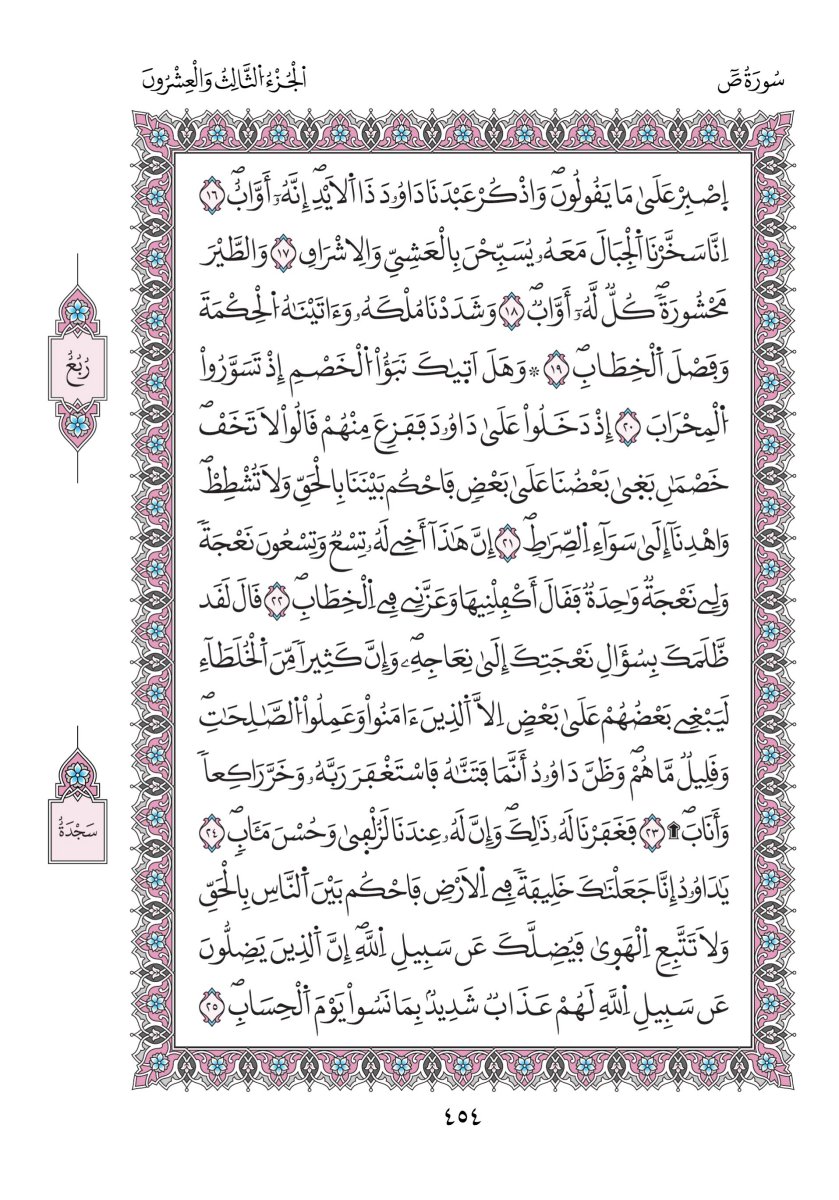 سُورَةُ صَٓ
اَ۬لْجُزْءُ اُ۬لثَّالِثُ وَالْعِشْرُونَ
اِ۪صْبِرْ عَلَىٰ مَا يَقُولُونَۖ وَاذْكُرْ عَبْدَنَا دَاوُۥدَ ذَا اَ۬لَايْدِۖ إِنَّهُۥٓ أَوَّابٌۖ ١٦
اِنَّا سَخَّرْنَا اَ۬لْجِبَالَ مَعَهُۥ يُسَبِّحْنَ بِالْعَشِيِّ وَالِاشْرَاقِ ١٧ وَالطَّيْرَ
مَحْشُورَةٗۖ كُلّٞ لَّهُۥٓ أَوَّابٞۖ ١٨ وَشَدَدْنَا مُلْكَهُۥ وَءَاتَيْنَٰهُ اُ۬لْحِكْمَةَ
وَفَصْلَ اَ۬لْخِطَابِۖ ١٩ ۞ وَهَلَ اَت۪يٰكَ نَبَؤُاْ اُ۬لْخَصْمِ إِذْ تَسَوَّرُواْ
اُ۬لْمِحْرَابَ ٢٠ إِذْ دَخَلُواْ عَلَىٰ دَاوُۥدَ فَفَزِعَ مِنْهُمْ قَالُواْ لَا تَخَفْۖ
خَصْمَٰنِ بَغ۪يٰ بَعْضُنَا عَلَىٰ بَعْضٖ فَاحْكُم بَيْنَنَا بِالْحَقِّ وَلَا تُشْطِطْۖ
وَاهْدِنَآ إِلَىٰ سَوَآءِ اِ۬لصِّرَٰطِۖ ٢١ إِنَّ هَٰذَآ أَخِے لَهُۥ تِسْعٞ وَتِسْعُونَ نَعْجَةٗ
وَلِے نَعْجَةٞ وَٰحِدَةٞ فَقَالَ أَكْفِلْنِيهَا وَعَزَّنِے فِے اِ۬لْخِطَابِۖ ٢٢ قَالَ لَقَد
ظَّلَمَكَ بِسُؤَالِ نَعْجَتِكَ إِلَىٰ نِعَاجِهِۦۖ وَإِنَّ كَثِيراٗ مِّنَ اَ۬لْخُلَطَآءِ
لَيَبْغِے بَعْضُهُمْ عَلَىٰ بَعْضٍ اِلَّا اَ۬لذِينَ ءَامَنُواْ وَعَمِلُواْ اُ۬لصَّٰلِحَٰتِۖ
وَقَلِيلٞ مَّا هُمْۖ وَظَنَّ دَاوُۥدُ أَنَّمَا فَتَنَّٰهُ فَاسْتَغْفَرَ رَبَّهُۥ وَخَرَّ رَاكِعاٗ
وَأَنَابَۖ ۩ ٢٣ فَغَفَرْنَا لَهُۥ ذَٰلِكَۖ وَإِنَّ لَهُۥ عِندَنَا لَزُلْف۪يٰ وَحُسْنَ مَـَٔابٖۖ ٢٤
يَٰدَاوُۥدُ إِنَّا جَعَلْنَٰكَ خَلِيفَةٗ فِے اِ۬لَارْضِ فَاحْكُم بَيْنَ اَ۬لنَّاسِ بِالْحَقِّ
وَلَا تَتَّبِعِ اِ۬لْهَو۪يٰ فَيُضِلَّكَ عَن سَبِيلِ اِ۬للَّهِۖ إِنَّ اَ۬لذِينَ يَضِلُّونَ
عَن سَبِيلِ اِ۬للَّهِ لَهُمْ عَذَابٞ شَدِيدُۢ بِمَا نَسُواْ يَوْمَ اَ۬لْحِسَابِۖ ٢٥
رُبُعُ
سَجْدَةٌ
٤٥٤